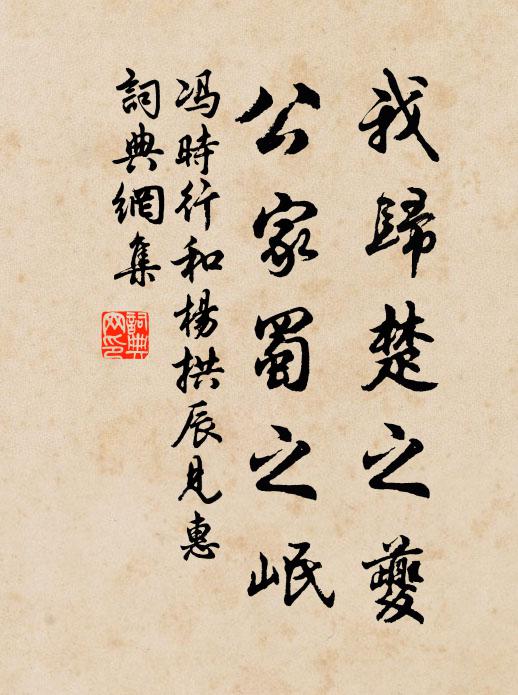 我歸楚之夔
公家蜀之岷
冯時行和楊拱辰見惠
詞典網集
詞典网印